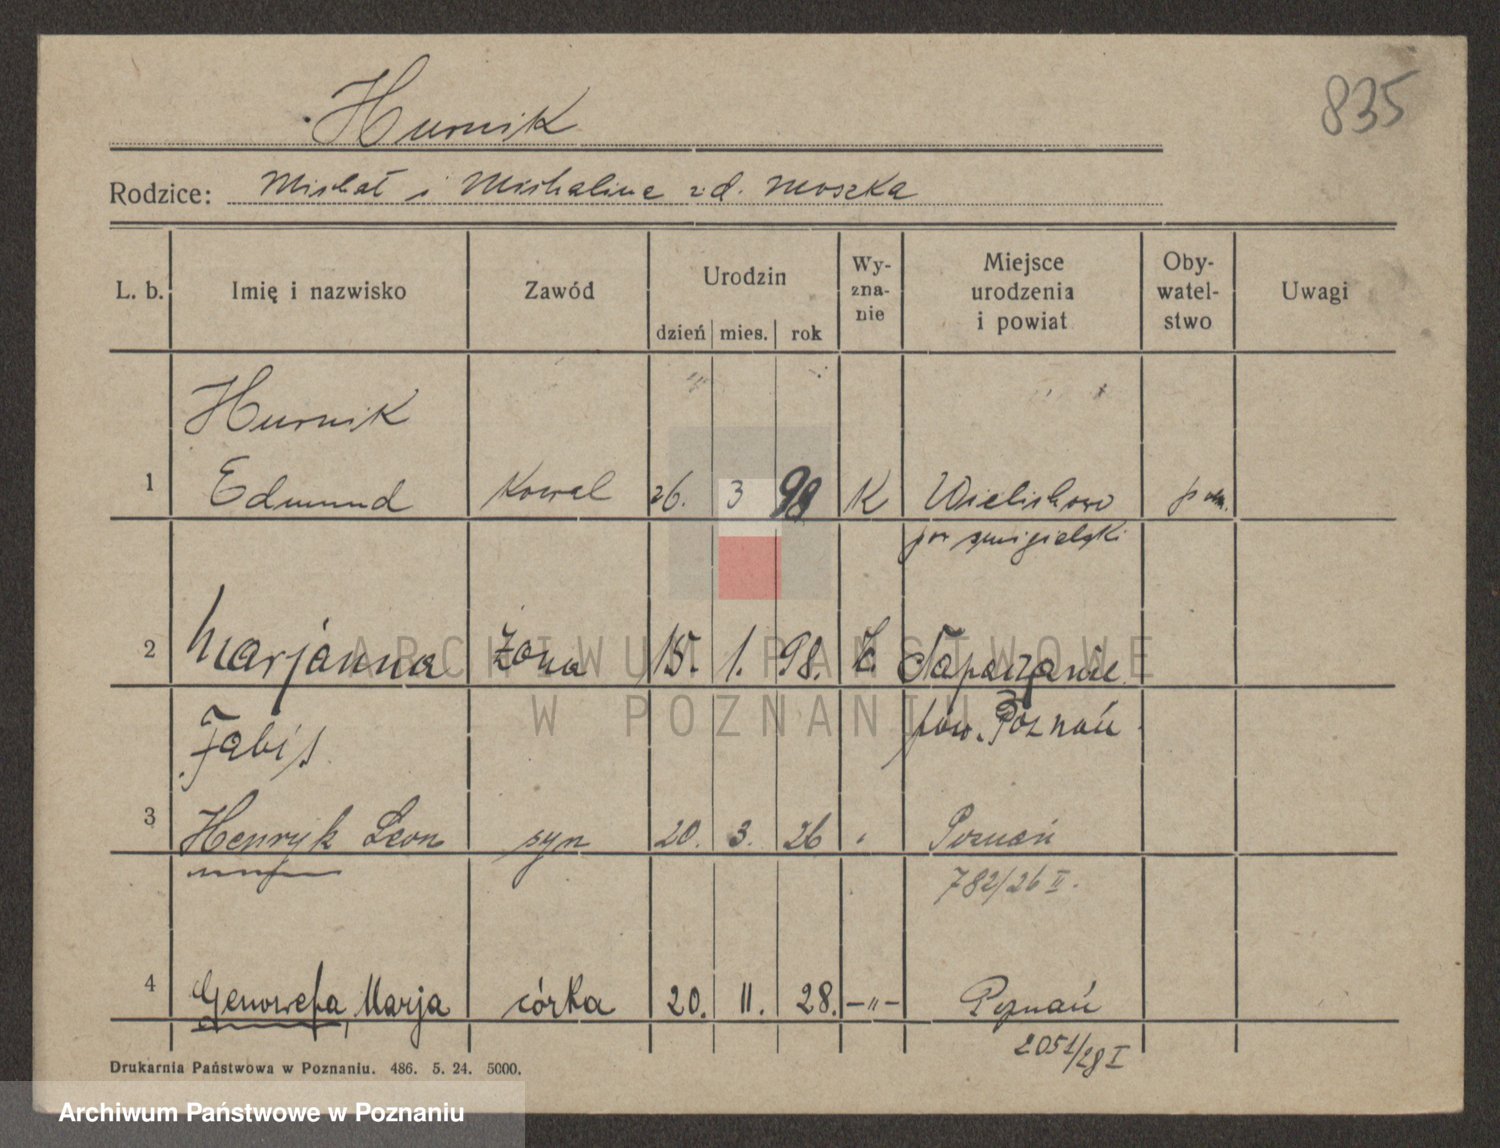 835
Hurnik
Rodzice: Michał i Michalina zd. Moszka
L. b. Imię i nazwisko Zawód Urodzin dzień mies. rok Wy-zna-nie Miejsce urodzenia i powiat Oby-watel-stwo Uwagi
Hurnik
1 Edmund Kowal 26. 3 98 K Wielichowo
pow śmigielski
2 Marjanna żona 15. 1. 98. K. Napachanie
pow. Poznań
Fabiś
3 Henryk Leon syn 20. 3. 26 Poznań
782/26 II.
4 Genowefa, Marja córka 20. 11. 28. —„— Poznań
2051/28 I
Drukarnia Państwowa w Poznaniu. 486. 5. 24. 5000.
ARCHIWUM PAŃSTWOWE
W POZNANIU
Archiwum Państwowe w Poznaniu